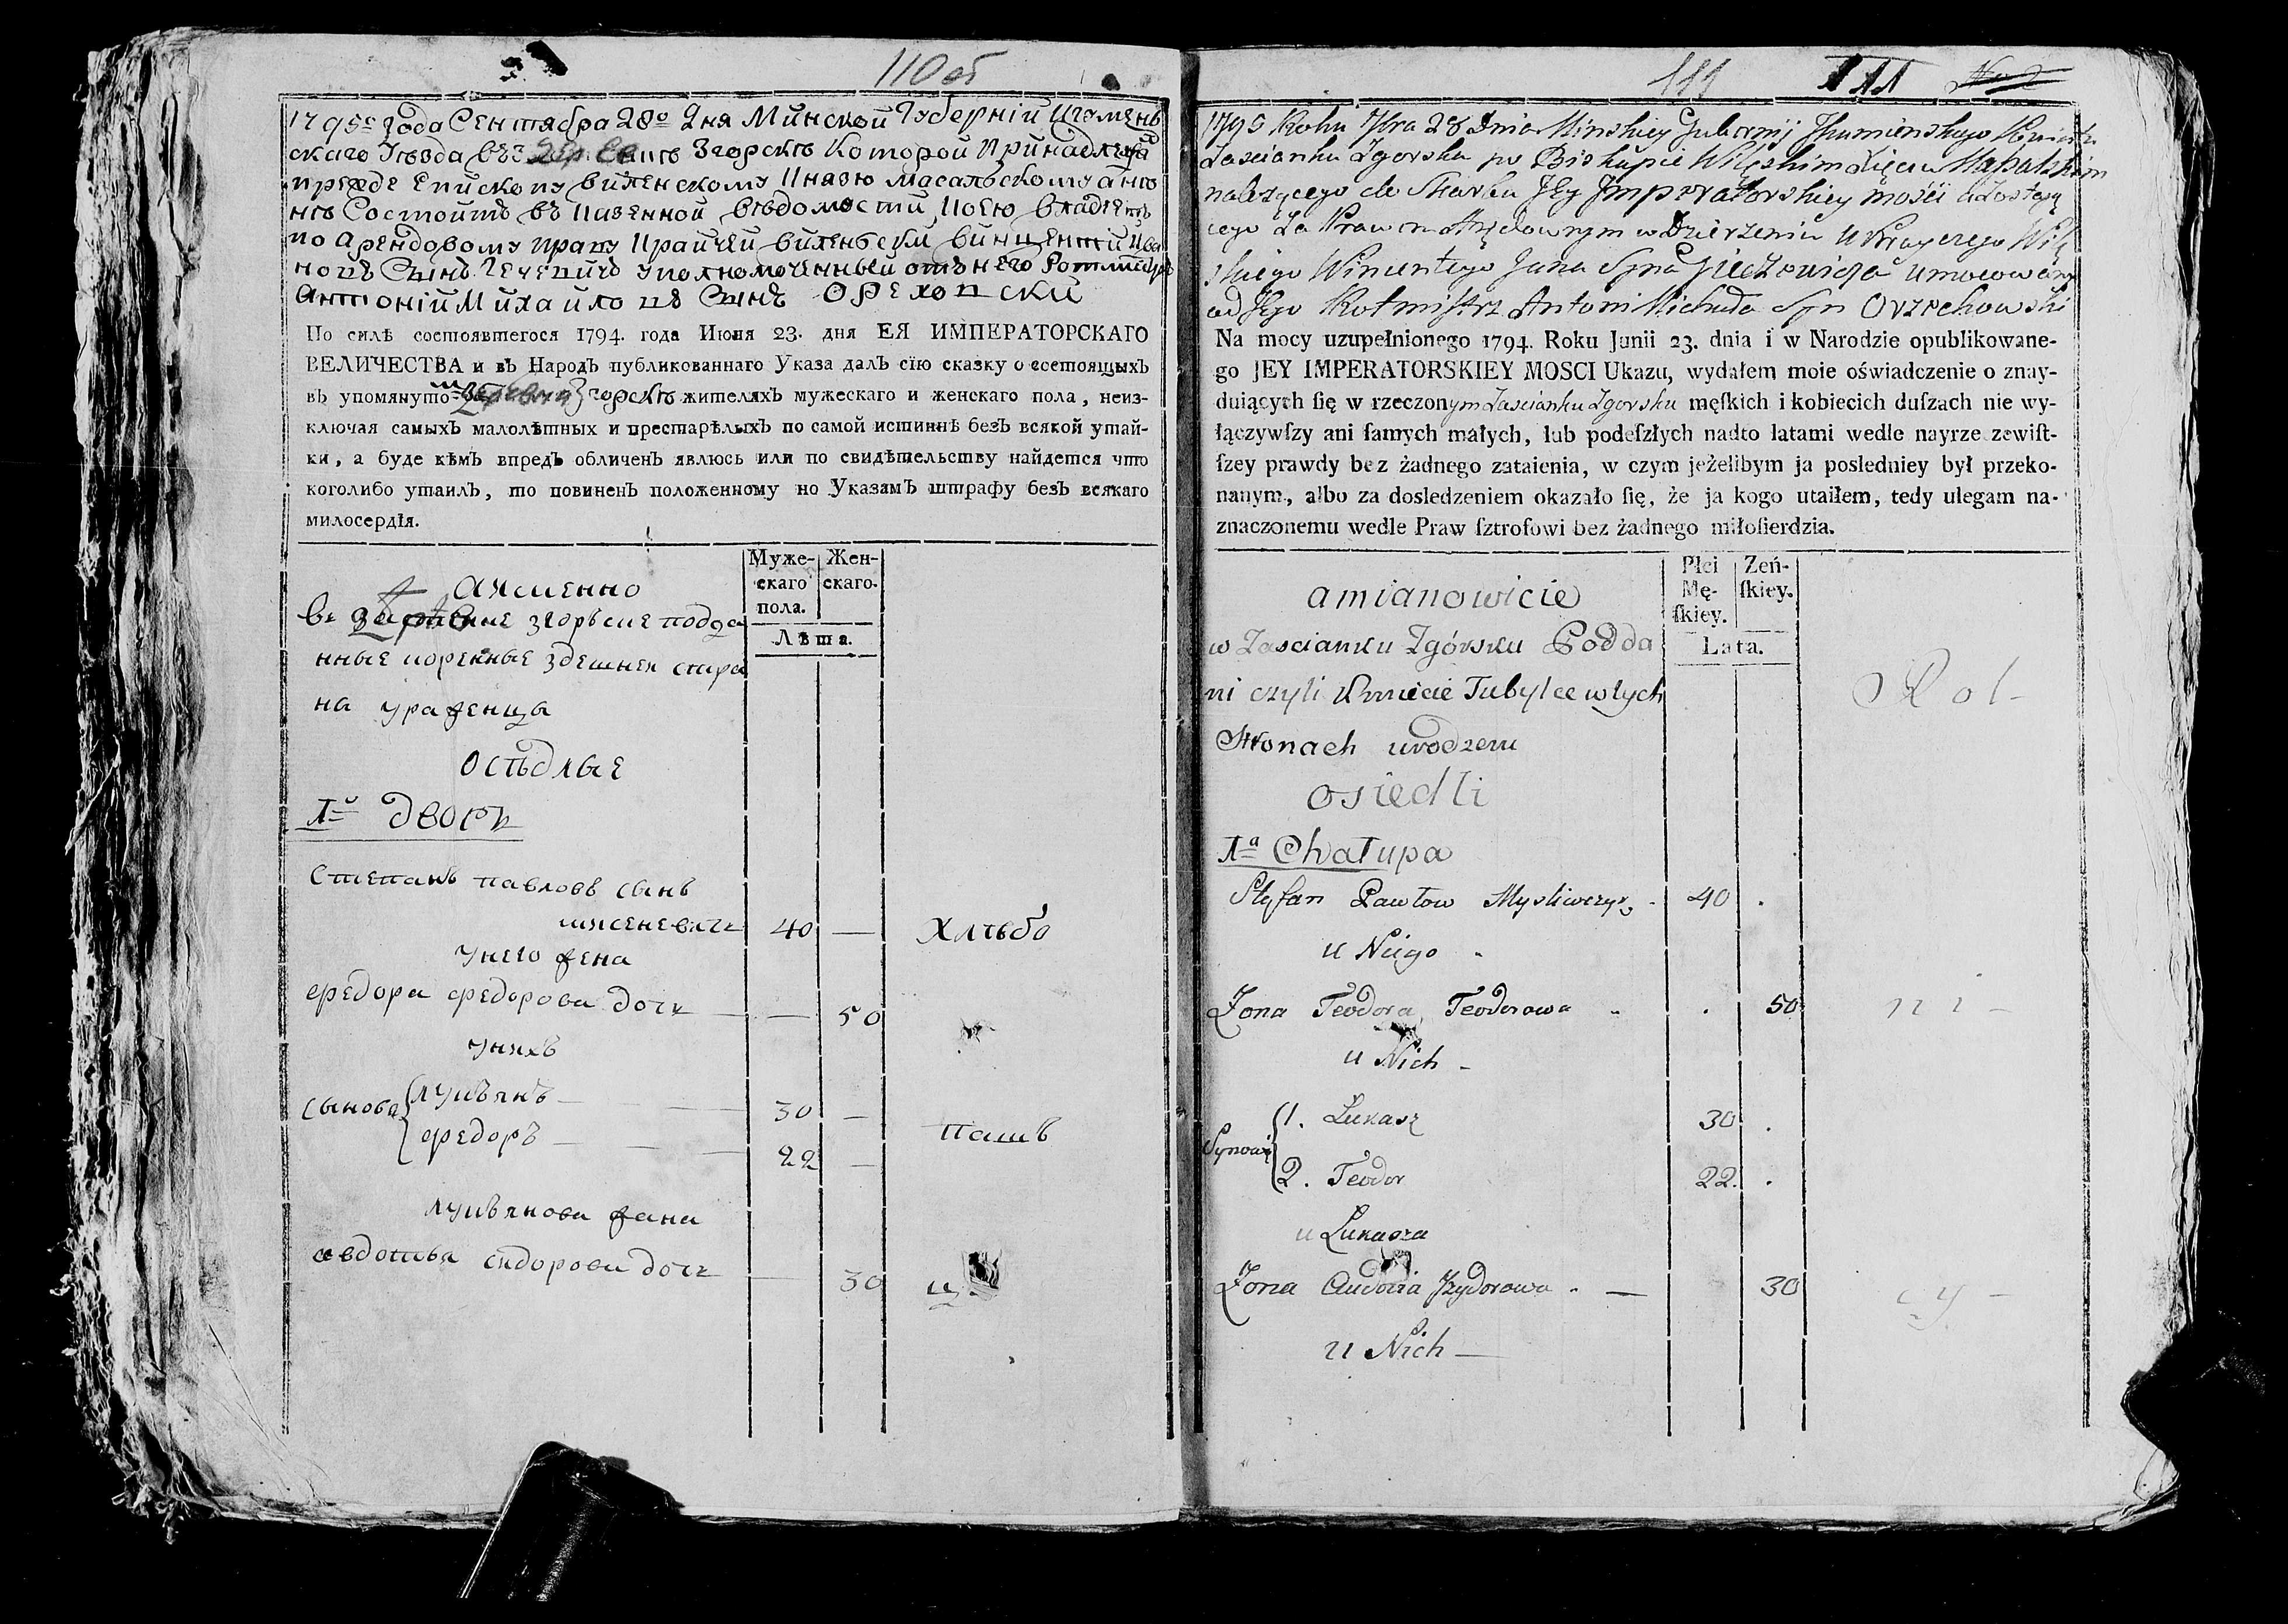 110 об
1795го года Сентября 28го Дня Минской Губерніи Игумень
скаго Уѣзда въ Згорскѣ Которой Принадлежа
прежде Епископу виленскому Князю Масальскому а нѣ
нѣ Состоитъ въ Казенной вѣдомости, Коею владеетъ
по Арендовому праву Крайчей виленьскій винцентій Ива
новъ Сынъ Гечевичъ уполномоченный отъ него Ротмистръ
Антоній Михайловъ Сынъ Ореховски
По силѣ состоявшегося 1794. года Июня 23. дня ЕЯ ИМПЕРАТОРСКАГО
ВЕЛИЧЕСТВА и въ Народъ публикованнаго Указа далъ сїю сказку о состоящыхъ
въ упомянуто Згорскѣ жителяхъ мужескаго и женскаго пола, неиз-
ключая самыхъ малолѣтных и престарѣлыхъ по самой истиннѣ безъ всякой утай-
ки, а буде кѣмъ впредъ обличенъ явлюсь или по свидѣтельству найдется что
коголибо утаилъ, то повиненъ положенному по Указамъ штрафу безъ всякаго
милосердїя.
Муже-
скаго
пола.
Жен-
скаго.
Лѣта.
Аименно
в згорьске подда
нные кореннье здешнея стра
на ураженца
Осѣдлые
1й дворъ
Степанъ павловъ сынъ
40 — Хлѣбо
Унего жена
Федора федорова дочь — — 50
унихъ
Сынова лукьянъ — 30 —
федоръ — 22 —
пашъ
лукьянова жана
авдотья сидорова дочь — 30 ц
111 111
1795 Roku 7bra 28 Dnia Minskiey Gubernij Jhumienskiego Powiatu
Zascianku Zgorsku po Biskupie Wileńskim Xięciu Massalskim
należącego do Skarbu Jey Imperatorskiey mości a Zostają
cego Za Prawem Arędownym w Dzierżeniu U Krayczego Wile
skiego Wincentego Jana Syna Gieczewicza umocowany
od Jego Rotmistrz Antoni Michała Syn Orzechowski
Na mocy uzupełnionego 1794. Roku Junii 23. dnia i w Narodzie opublikowane-
go JEY IMPERATORSKIEY MOSCI Ukazu, wydałem moie oświadczenie o znay-
duiących ſię w rzeczonym Zascianku Zgorsku męſkich i kobiecich duſzach nie wy-
łączywſzy ani ſamych małych, lub podeſzłych nadto latami wedle nayrzezewiſt-
ſzey prawdy bez żadnego zataienia, w czym jeżelibym ja posledniey był przeko-
nanym, albo za dosledzeniem okazało ſię, że ja kogo utaiłem, tedy ulegam na-
znaczonemu wedle Praw ſztrofowi bez żadnego miłoſierdzia.
Płci
Mę-
ſkiey.
Zeń-
ſkiey.
Lata.
amianowicie
w Zascianku Zgórsku Podda
ni czyli Kmiecie Tubylce w tych
Stronach urodzeni
Rol-
osiedli
1a Chałupa
Stefan Pawłow 40 .
u Niego
Zona Teodora Teodorowa . 50 ni-
u Nich -
Synowie 1. Łukasz 30 .
2. Teodor 22. .
u Łukasza
Zona Audocia Jzydorowa . — 30 cy -
u Nich —